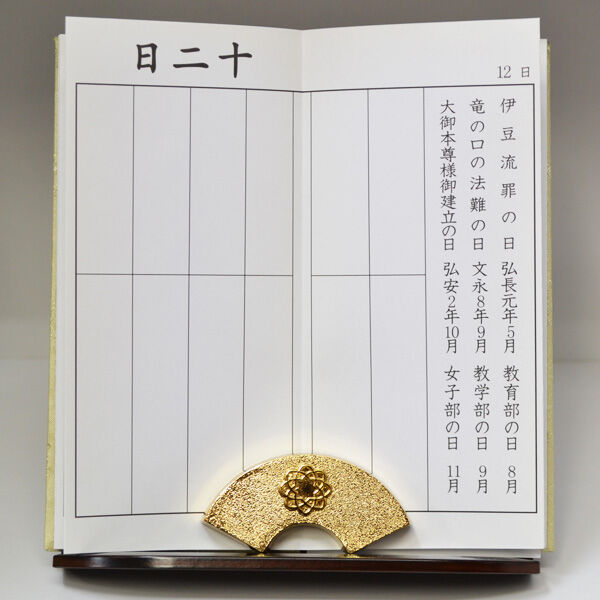 十二日
12日
伊豆流罪の日 弘長元年5月 教育部の日 8月
竜の口の法難の日 文永8年9月 教学部の日 9月
大御本尊様御建立の日 弘安2年10月 女子部の日 11月